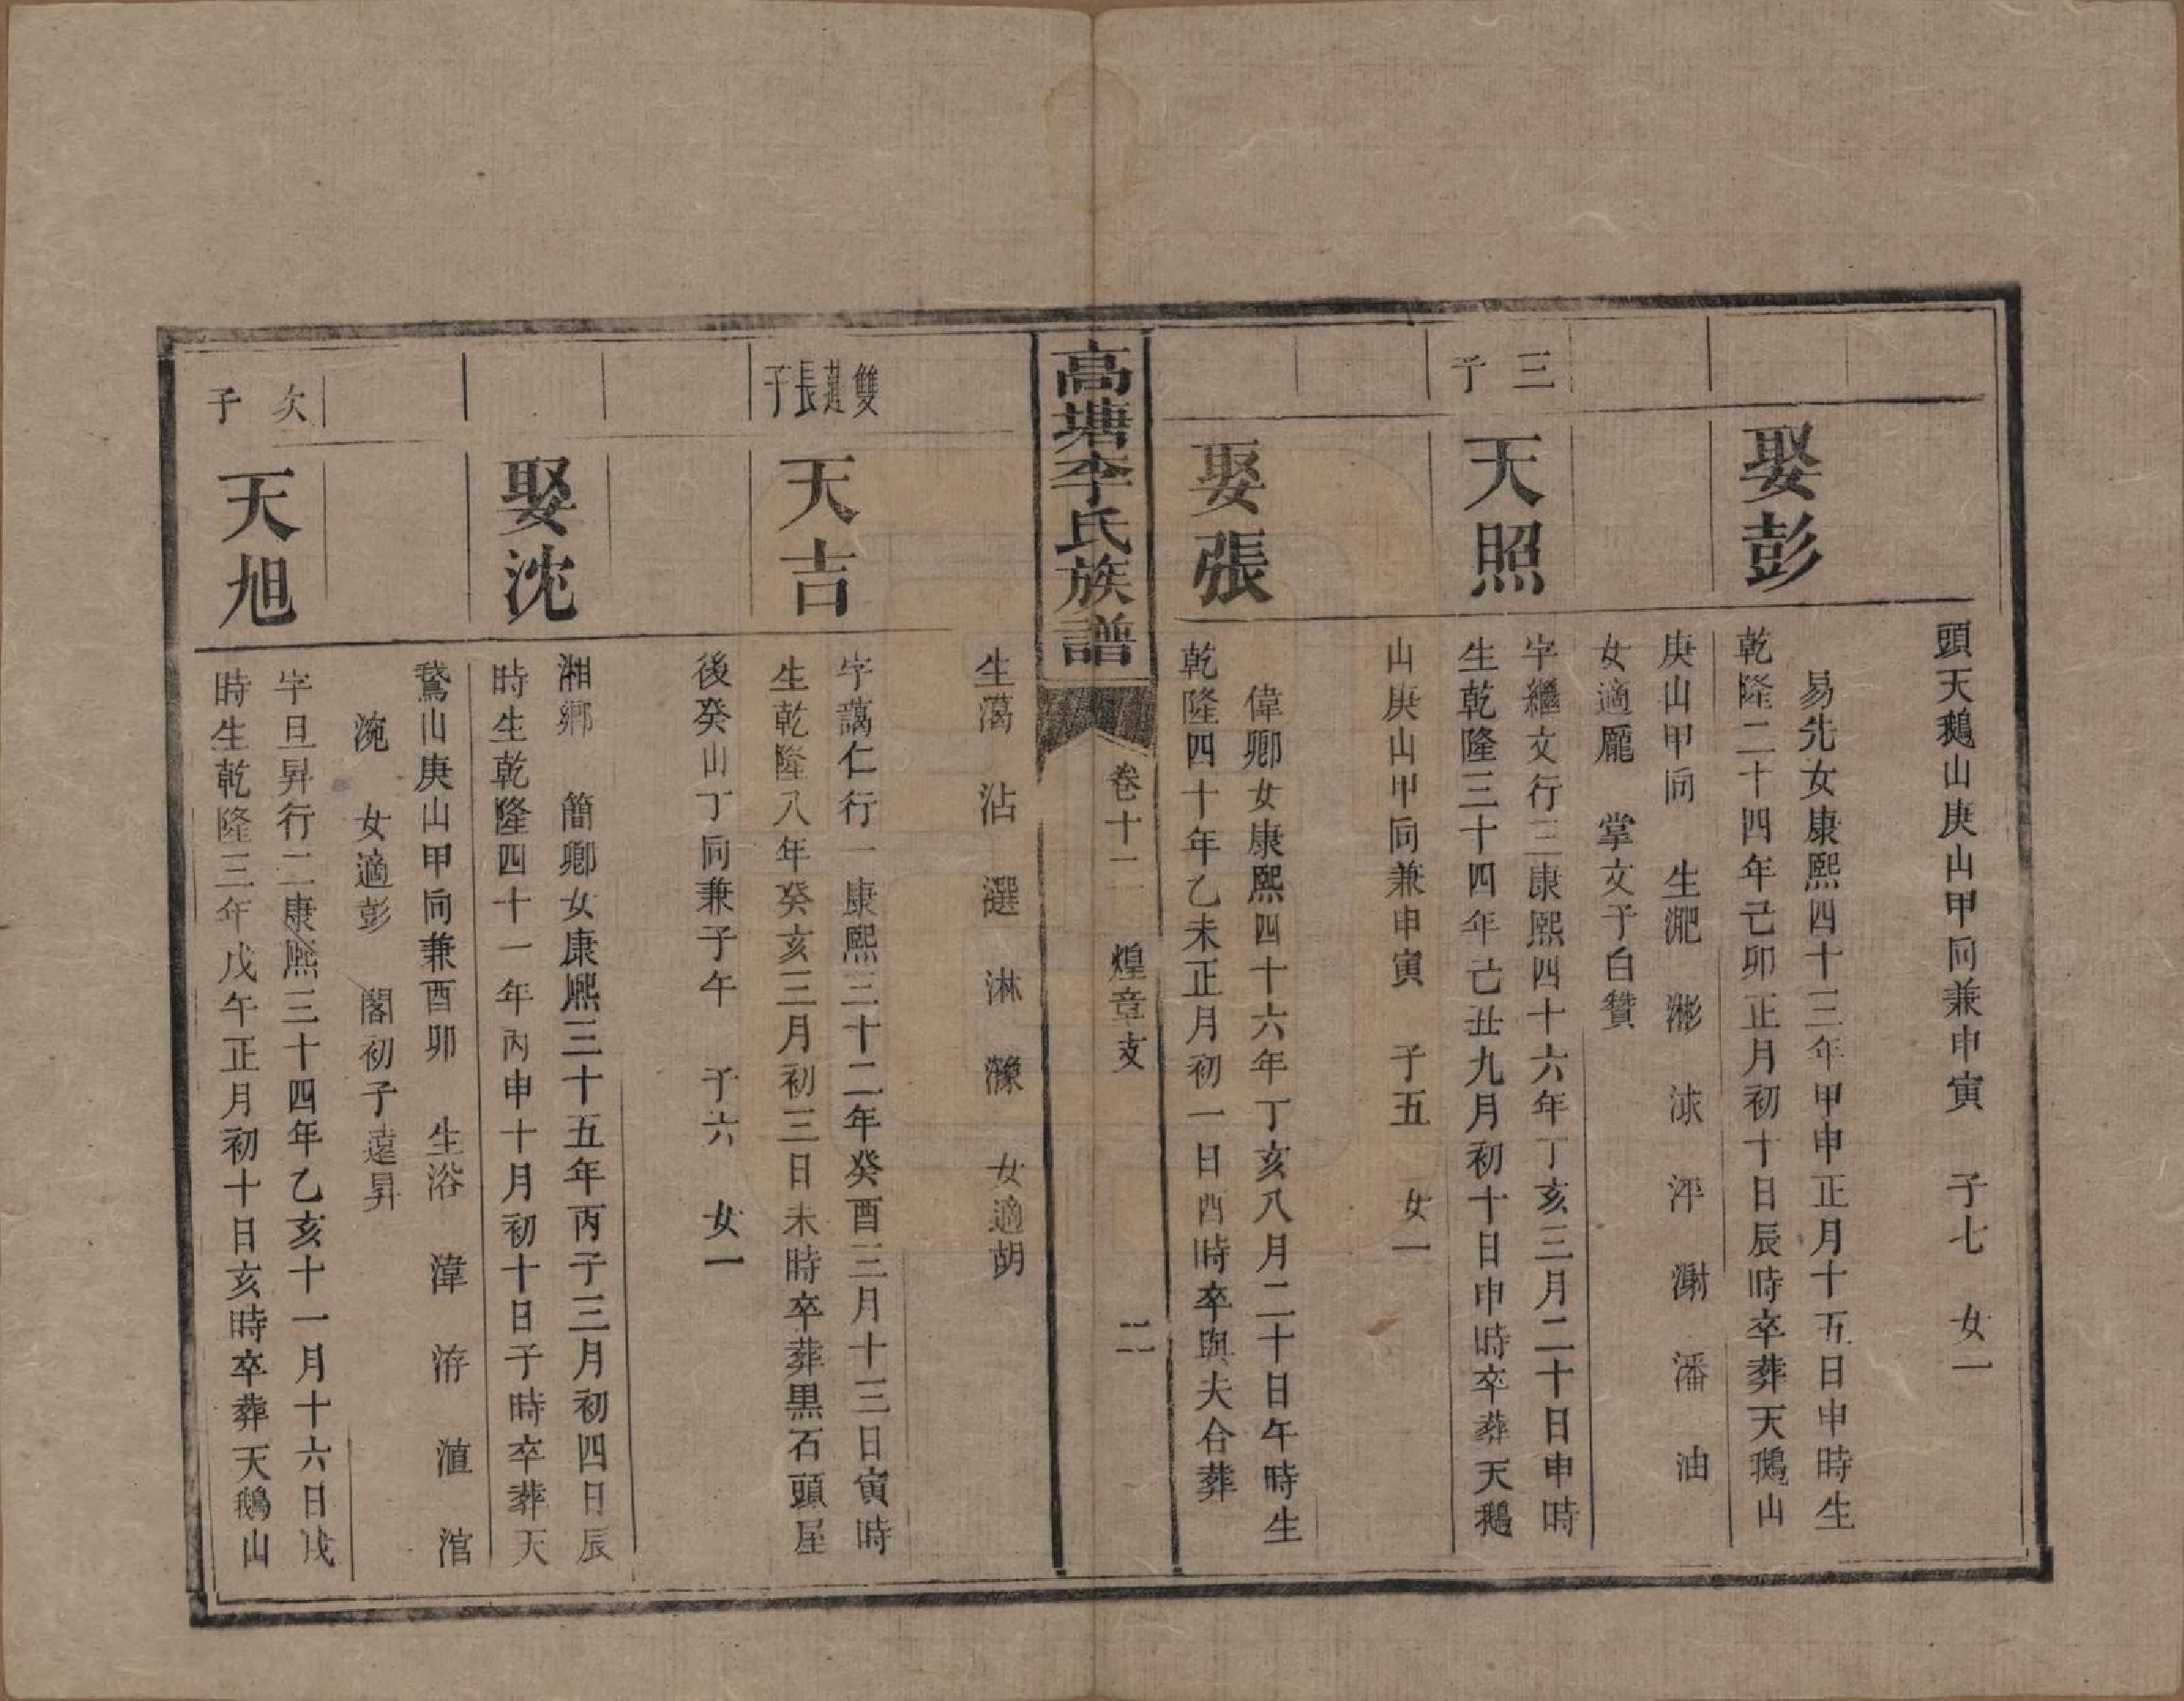 頭天鵝山庚山甲向兼申寅　子七　女一
娶彭
易先女康熙四十三年甲申正月十五日申時生
乾隆二十四年己卯正月初十日辰時卒葬天鵝山
庚山甲向　生淝　澎　浗　泙　澍　潘　油
女適龎　掌文子白贊
三子
天照
字繼文行三康熙四十六年丁亥三月二十日申時
生乾隆三十四年己丑九月初十日申時卒葬天鵝
山庚山甲向兼申寅　子五　女一
娶張
偉卿女康熙四十六年丁亥八月二十日午時生
乾隆四十年乙未正月初一日酉時卒與夫合葬
高塘李氏族譜
卷十二　煌章支
二
生澫　沾　選　淋　濠　女適胡
雙蓮長子
天吉
字藹仁行一康熙三十二年癸酉三月十三日寅時
生乾隆八年癸亥三月初三日未時卒葬黑石頭屋
後癸山丁向兼子午　子六　女一
娶沈
湘鄉　簡卿女康熙三十五年丙子三月初四日辰
時生乾隆四十一年丙申十月初十日子時卒葬天
鵞山庚山甲向兼酉卯　生浴　湋　洊　湞　涫
涴　女適彭　閣初子遠昇
次子
天旭
字旦昇行二康熙三十四年乙亥十一月十六日戌
時生乾隆三年戊午正月初十日亥時卒葬天鵝山